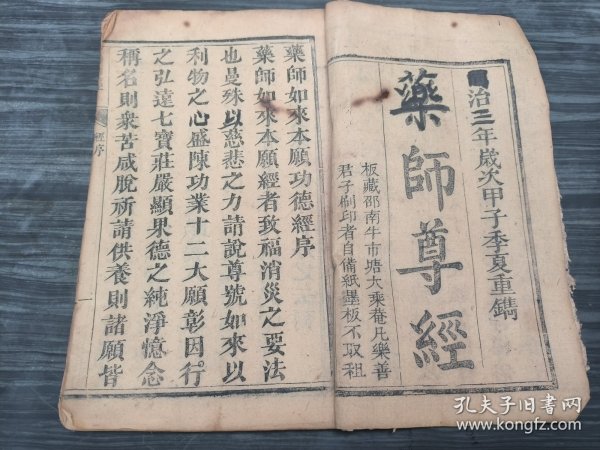 治三年歲次甲子季夏重鐫
藥師尊經
板藏邵南牛市塘大乘菴凡樂善
君子刷印者自備紙墨板不取租
藥師如來本願功德經序
藥師如來本願經者致福消災之要法
也曼殊以慈悲之力請說尊號如來以
利物之心盛陳功業十二大願彰因行
之弘遠七寶莊嚴顯果德之純淨憶念
稱名則衆苦咸脫祈請供養則諸願皆
經序
一
孔夫子旧书网
www.kongfz.com